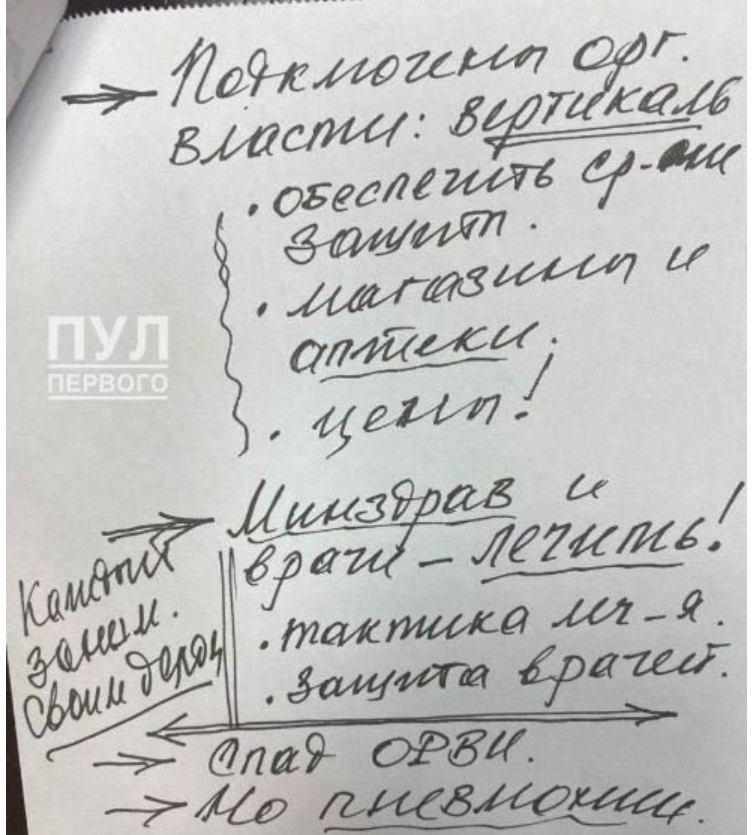 Подключены орг.
власти: вертикаль
• обеспечить ср-ми
защиты.
• магазины и
аптеки.
• цены!
ПУЛ
ПЕРВОГО
Минздрав и
врачи – лечить!
• тактика леч-я.
• защита врачей.
Каждый
заним.
своим делом
Спад ОРВИ.
Но пневмонии.